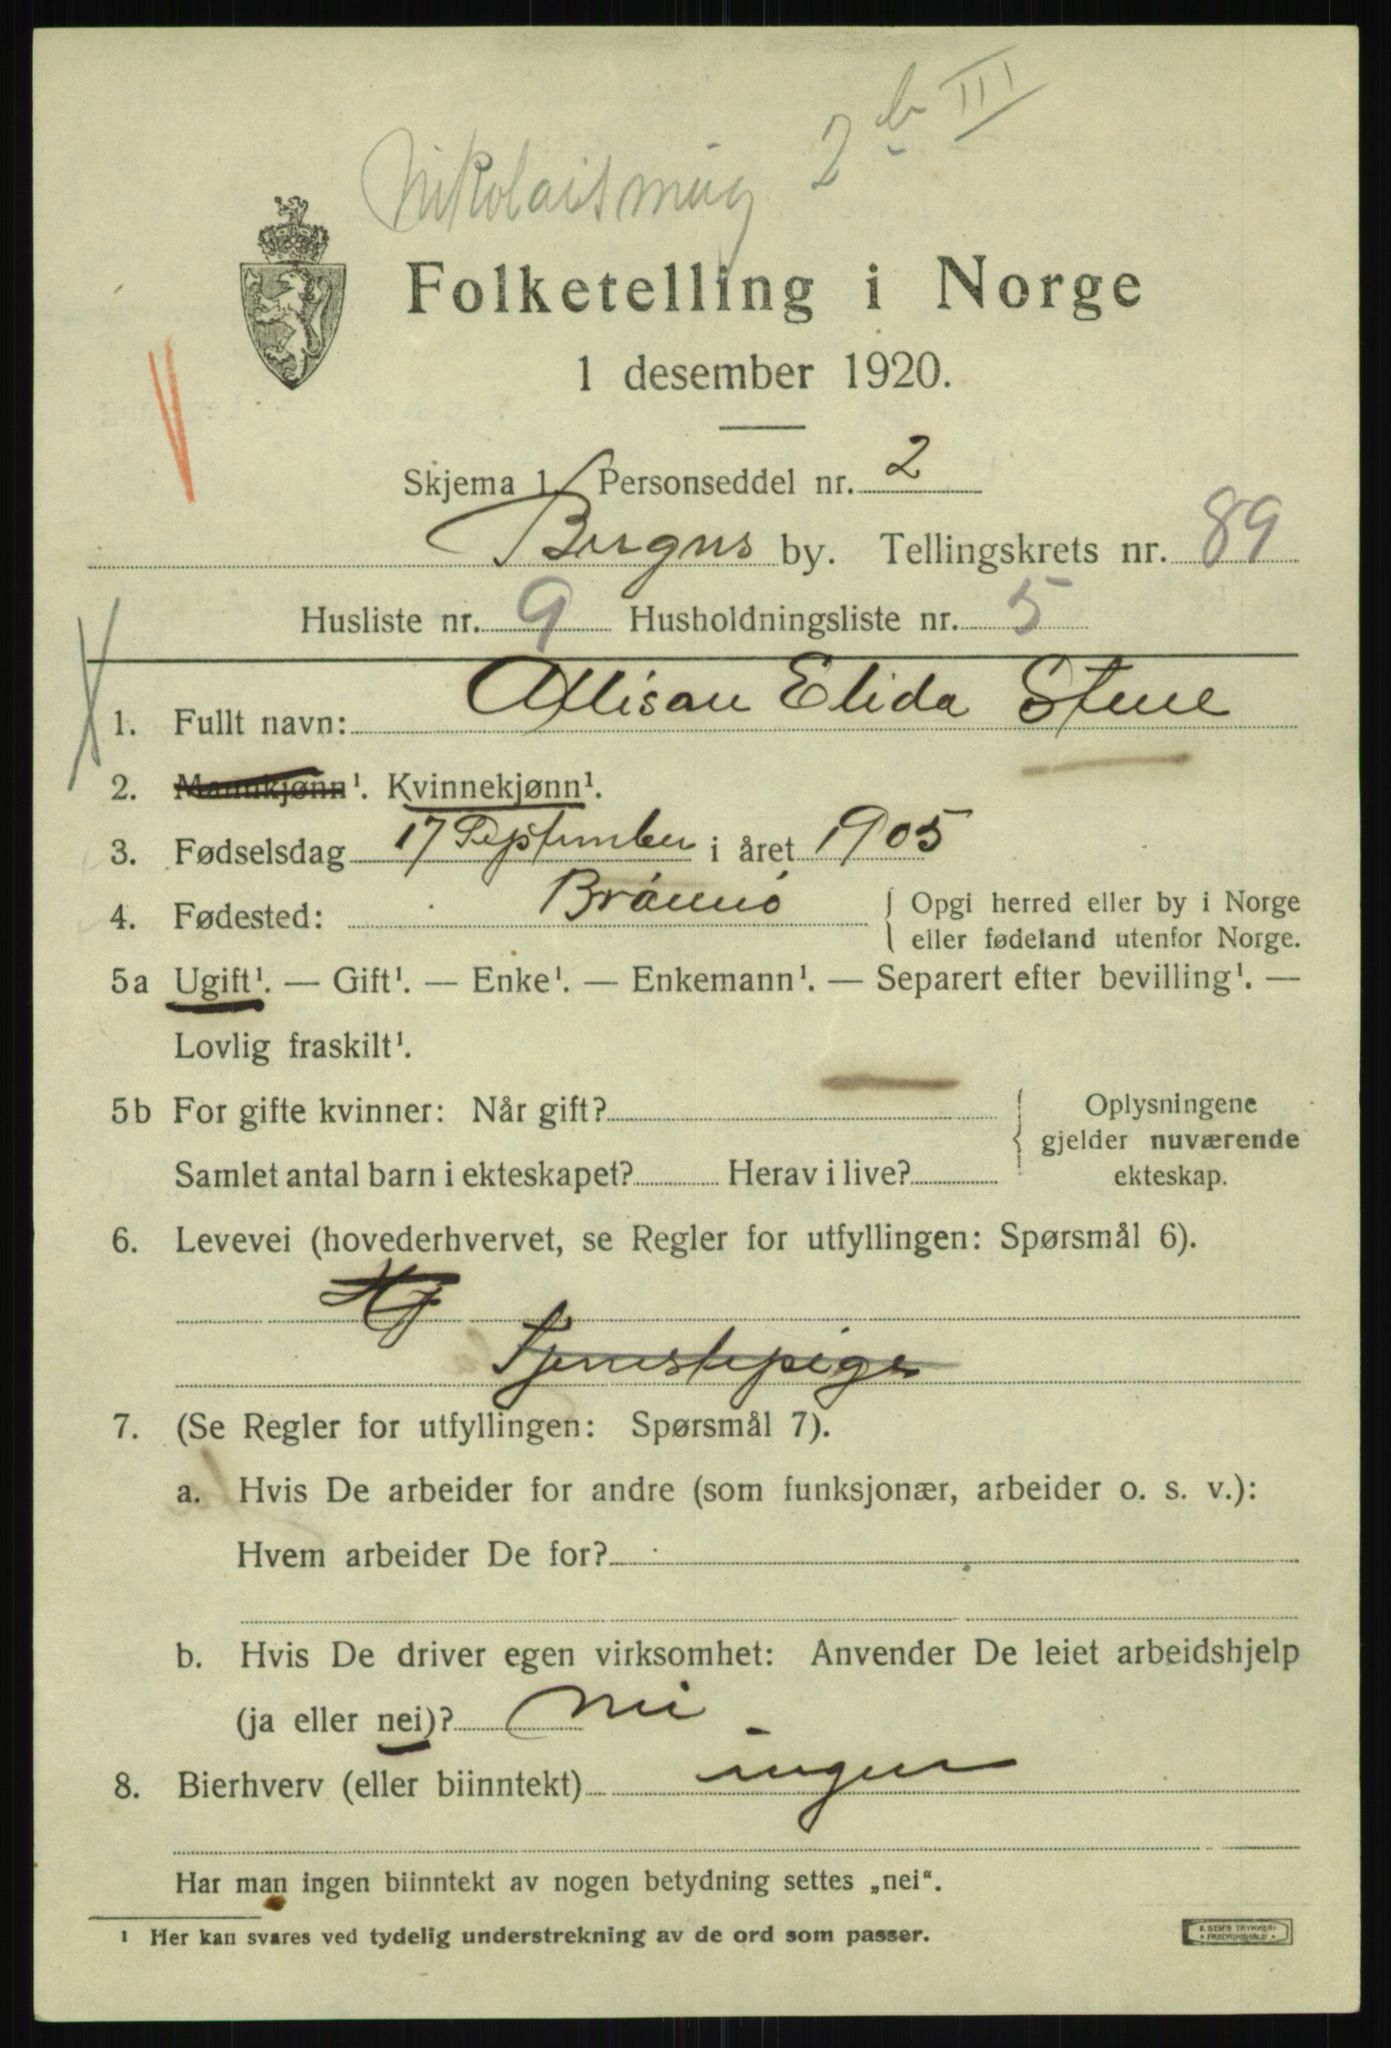 Nikolaismug 2 b III
Folketelling i Norge
1 desember 1920.
Skjema 1 Personseddel nr. 2
Bergens by. Tellingskrets nr. 89
Husliste nr. 9 Husholdningsliste nr. 5
1. Fullt navn: Allisan Elida Stene
2. Mannkjønn¹. Kvinnekjønn¹.
3. Fødselsdag 17 September i året 1905
4. Fødested: Brönnö { Opgi herred eller by i Norge
eller fødeland utenfor Norge.
5a Ugift¹. — Gift¹. — Enke¹. — Enkemann¹. — Separert efter bevilling¹. —
Lovlig fraskilt¹.
5b For gifte kvinner: Når gift? { Oplysningene
gjelder nuværende
ekteskap.
Samlet antal barn i ekteskapet? Herav i live?
6. Levevei (hovederhvervet, se Regler for utfyllingen: Spørsmål 6).
Tjenestepige
7. (Se Regler for utfyllingen: Spørsmål 7).
a. Hvis De arbeider for andre (som funksjonær, arbeider o. s. v.):
Hvem arbeider De for?
b. Hvis De driver egen virksomhet: Anvender De leiet arbeidshjelp
(ja eller nei)? nei
8. Bierhverv (eller biinntekt) ingen
Har man ingen biinntekt av nogen betydning settes „nei“.
¹ Her kan svares ved tydelig understrekning av de ord som passer.
E. SEM'S TRYKKERI
FREDRIKSHALD